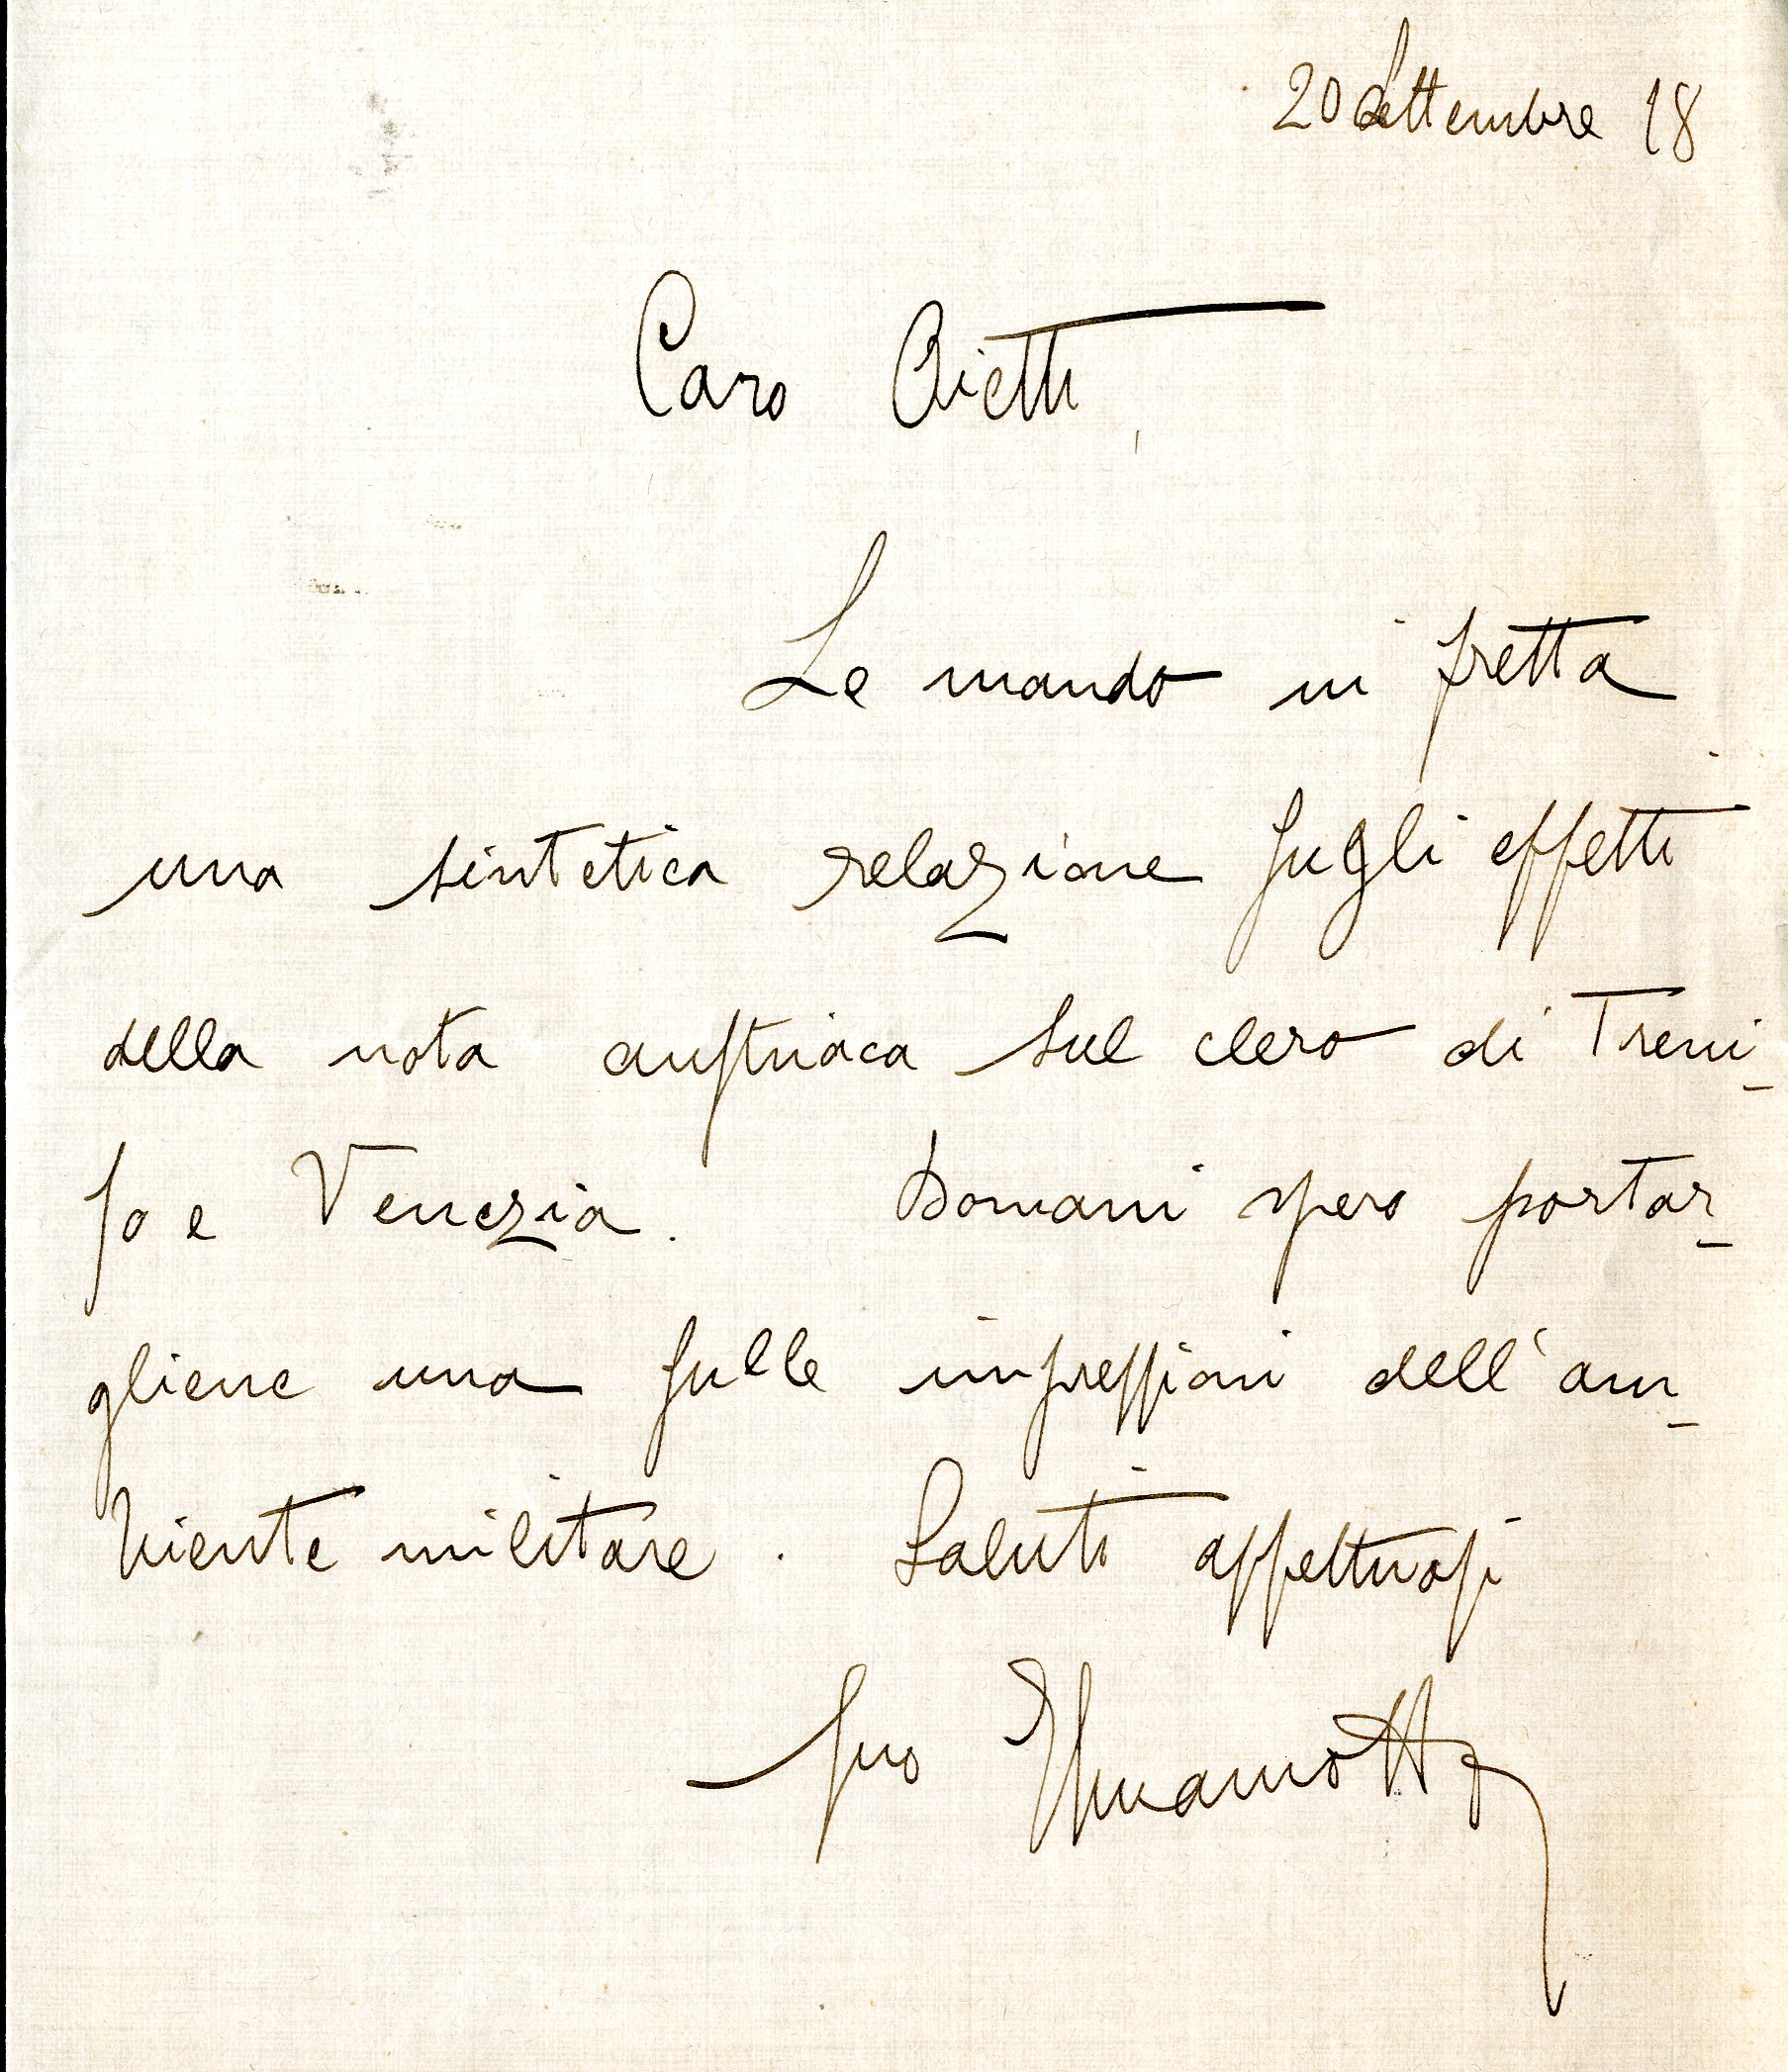 20 Settembre 18
Caro Oietti,
Le mando in fretta
una sintetica relazione sugli effetti
della nota austriaca sul clero di Trevi-
so e Venezia. Domani spero portar-
gliene una sulle impressioni dell'am-
biente militare. Saluti affettuosi
suo